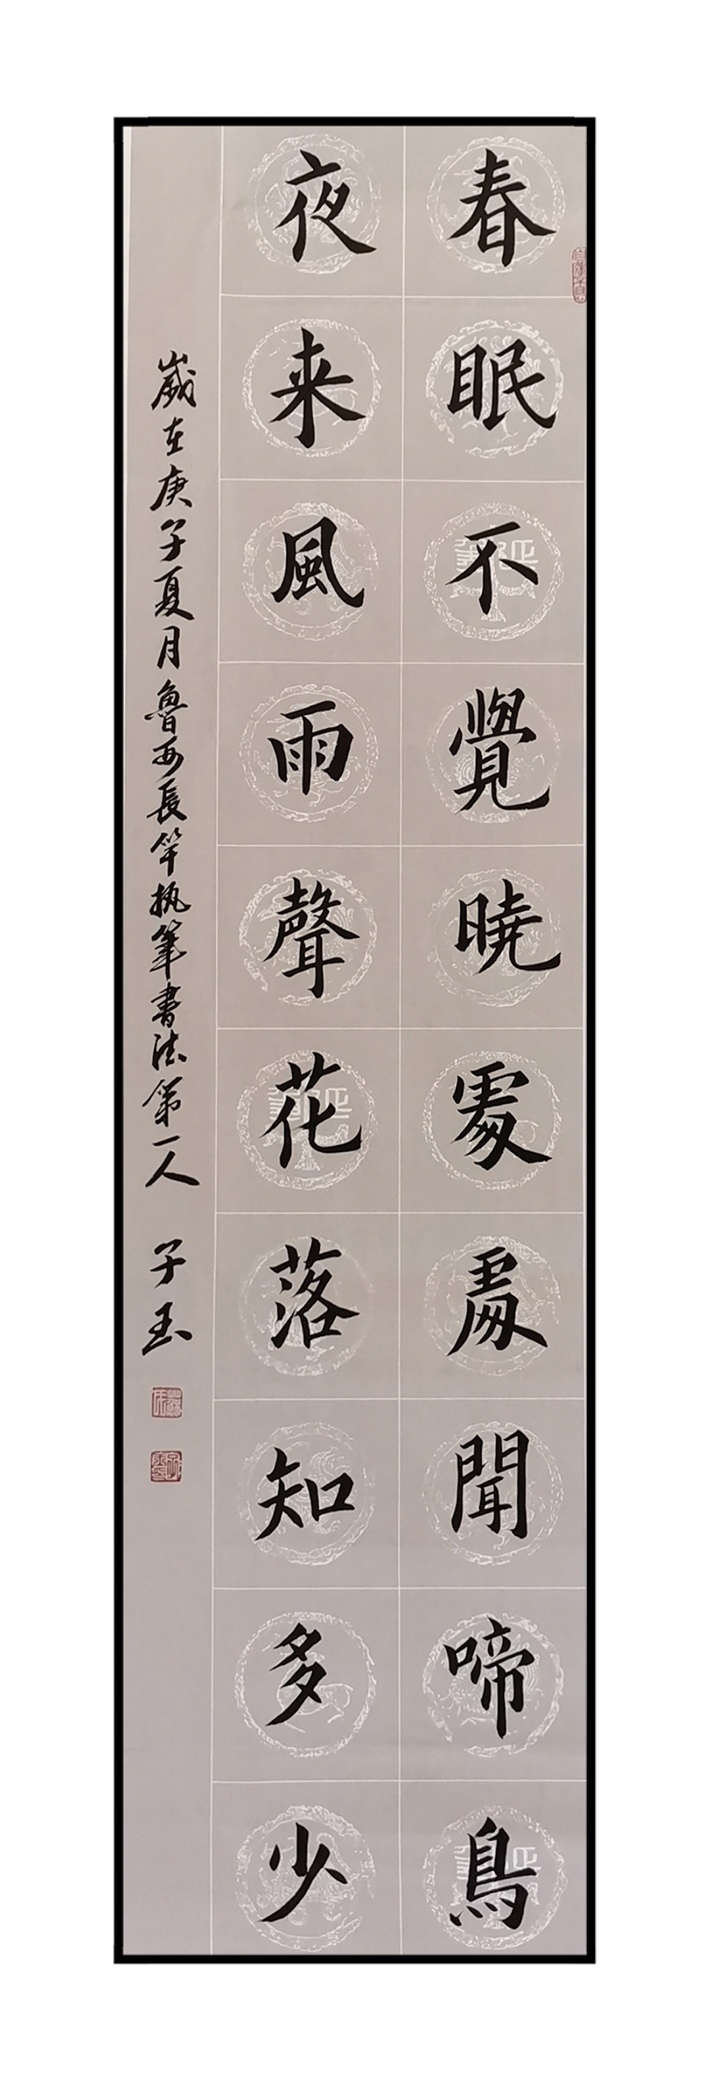 春眠不覺曉處處聞啼鳥
夜来風雨聲花落知多少
歲在庚子夏月魯西長竿执筆書法第一人 子玉